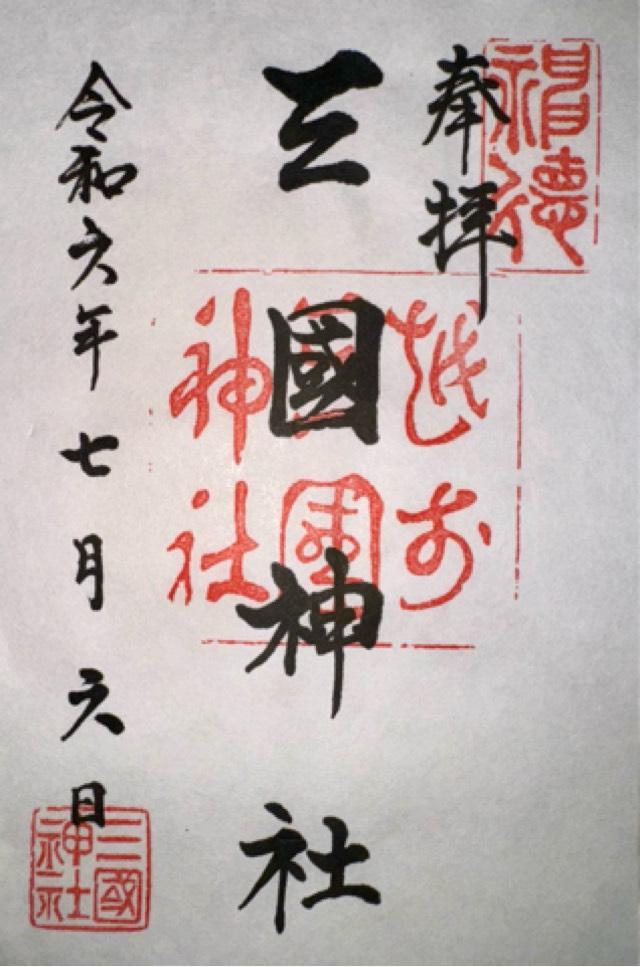 奉拝
三國神社
令和六年七月六日
越前
國
神社
三國
神社